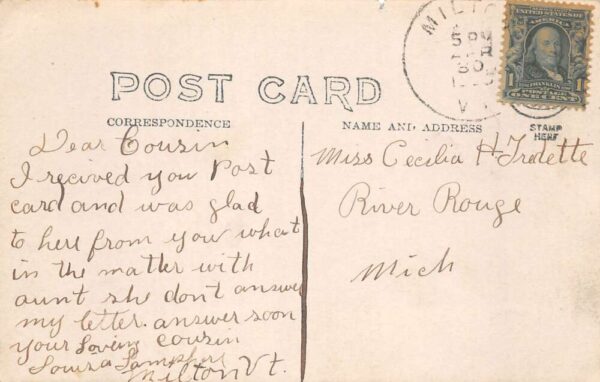 POST CARD
CORRESPONDENCE
NAME AND ADDRESS
STAMP
HERE
MILTO
5 PM
30
V
UNITED STATES OF
AMERICA
FRANKLIN
1
1
ONE CENT
Dear Cousin
I recived you Post
card and was glad
to here from you what
in the matter with
aunt she dont answer
my letter. answer soon
your Loving cousin
Louiza
Milton Vt.
Miss Cecilia H
River Rouge
Mich